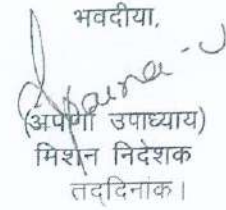 भवदीया,
(अपर्णा उपाध्याय)
मिशन निदेशक
तद्दिनांक।